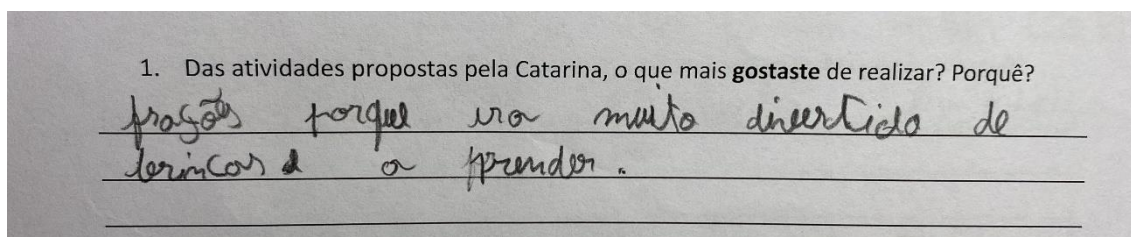 1. Das atividades propostas pela Catarina, o que mais gostaste de realizar? Porquê?
frações porque era muito divertido de
brincar e a prender.